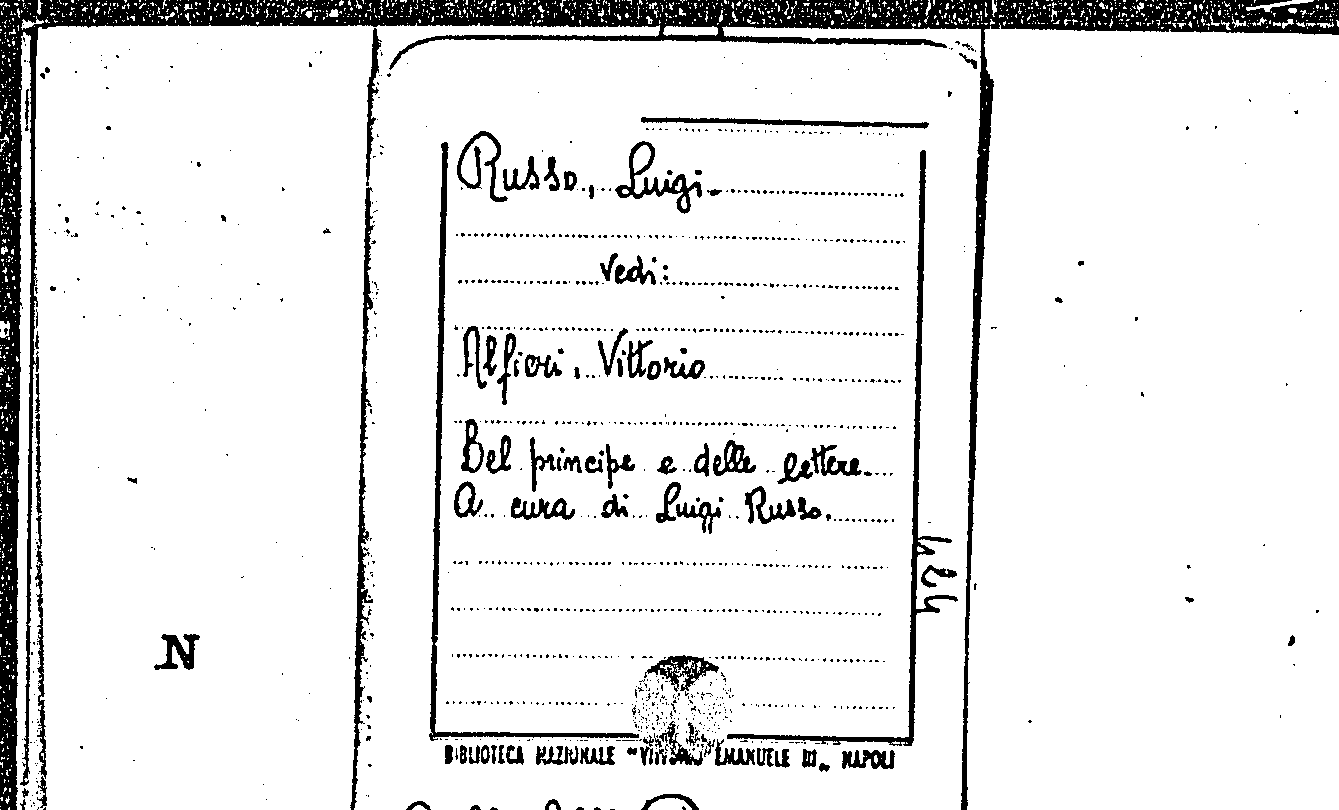 Russo, Luigi.
vedi:
Alfieri, Vittorio
Del principe e delle lettere.
A cura di Luigi Russo.
N
BIBLIOTECA NAZIONALE "VITTORIO EMANUELE III„ NAPOLI